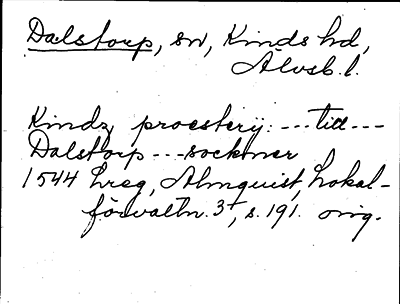 Dalstorp, sn, Kinds hd,
Älvsb. l.
Kindz proesterij: --- till ---
Dalstorp --- sockner
1544 hreg, Almquist, Lokal-
förvaltn. 3, s. 191. orig.